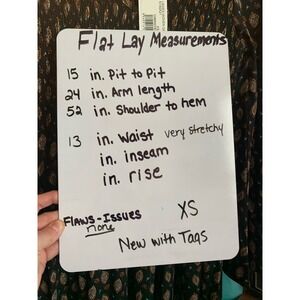 Flat Lay Measurements
15 in. Pit to Pit
24 in. Arm length
52 in. Shoulder to hem
13 in. Waist very stretchy
in. inseam
in. rise
FLAWS - ISSUES
none
XS
New with Tags